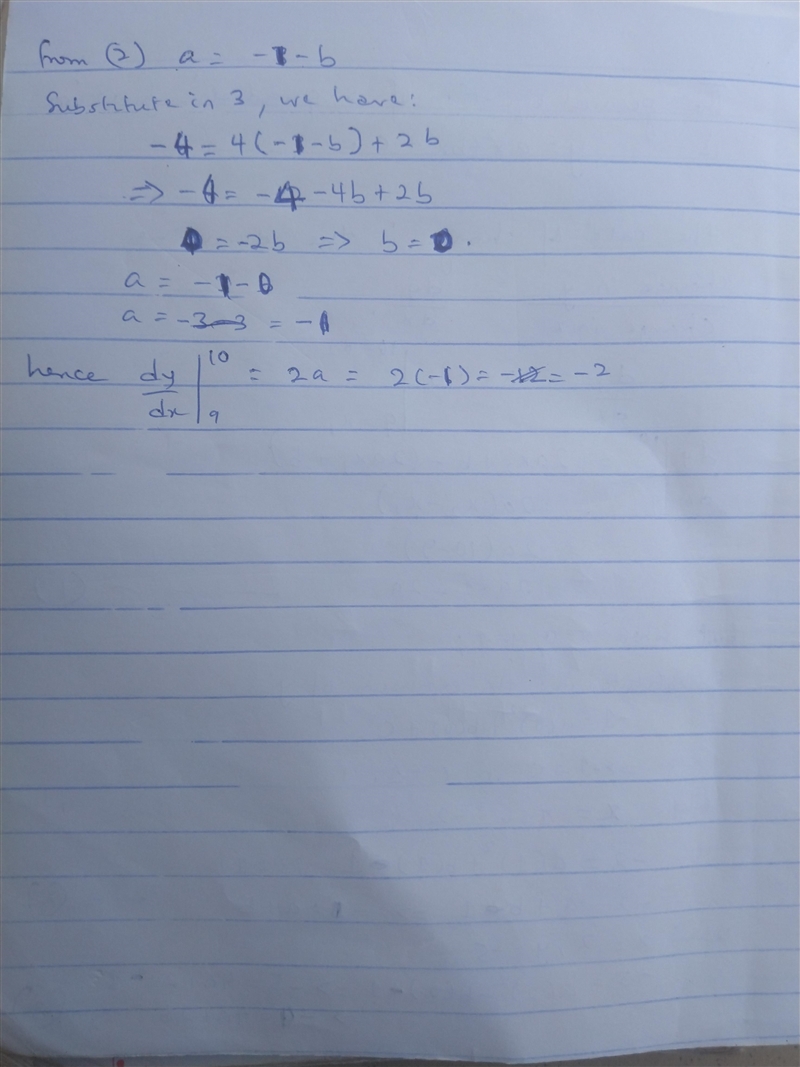 from (2) a = -1 - b
Substitute in 3, we have:
-4 = 4(-1 - b) + 2b
=> -4 = -4 - 4b + 2b
0 = -2b => b = 0.
a = -1 - 0
a = -3 - 3 = -1
hence dy/dx |₉¹⁰ = 2a = 2(-1) = -12 = -2